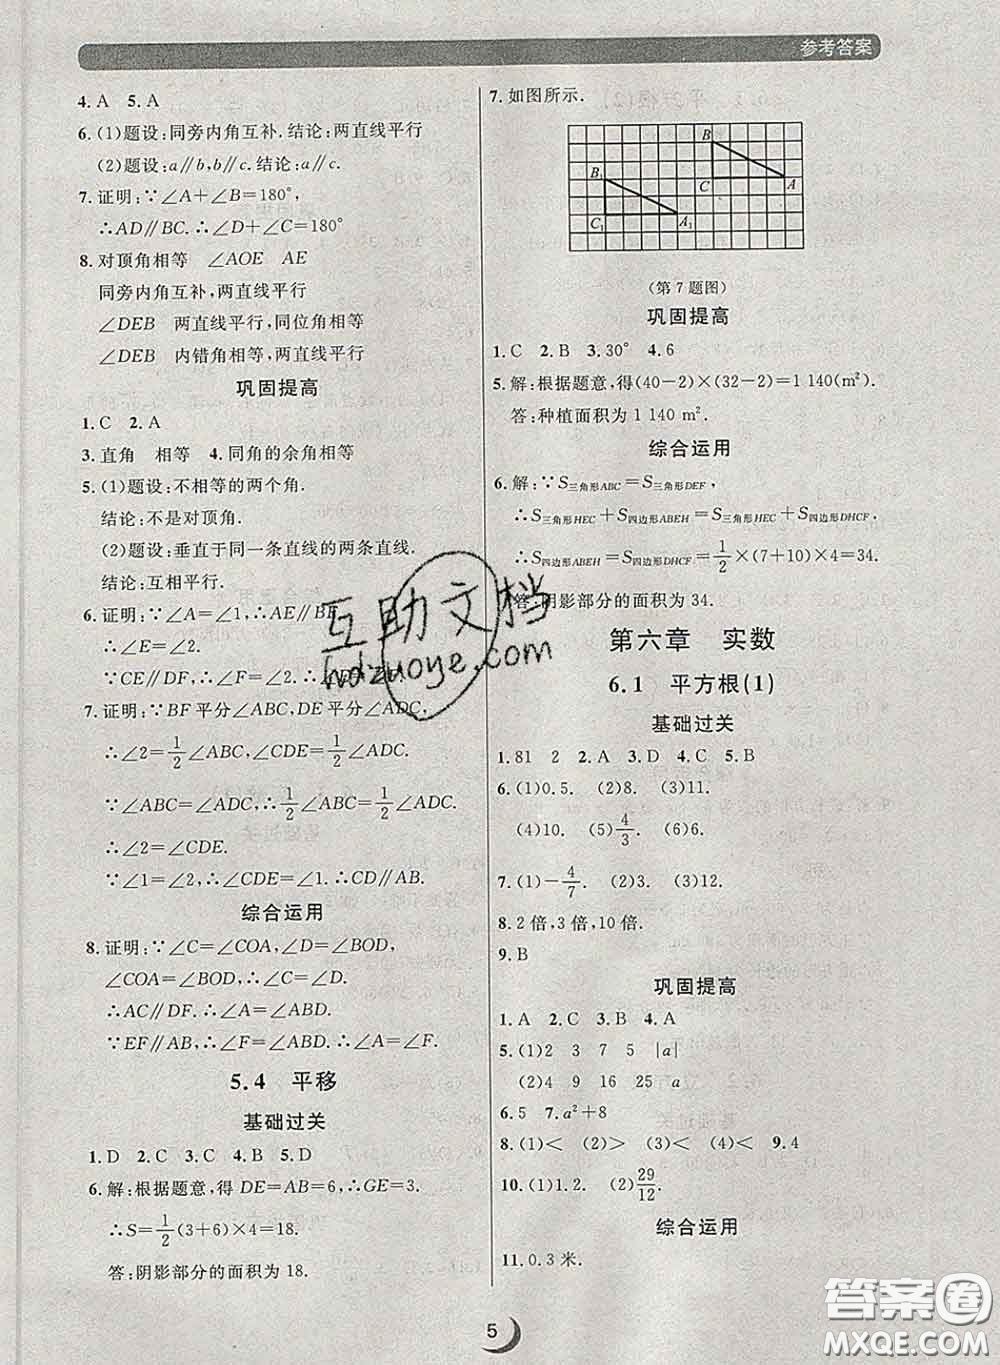 参考答案
4.A 5.A
6.(1)题设:同旁内角互补.结论:两直线平行
(2)题设:a∥b,b∥c.结论:a∥c.
7.证明:∵∠A+∠B=180°
∴AD∥BC.∴∠D+∠C=180°
8.对顶角相等 ∠AOE AE
同旁内角互补,两直线平行
∠DEB 两直线平行,同位角相等
∠DEB 内错角相等,两直线平行
巩固提高
1.C 2.A
3.直角 相等 4.同角的余角相等
5.(1)题设:不相等的两个角.
结论:不是对顶角.
(2)题设:垂直于同一条直线的两条直线.
结论:互相平行.
6.证明:∵∠A=∠1,∴AE∥BF.
∴∠E=∠2.
∵CE∥DF,∴∠E=∠F.
7.证明:∵BF平分∠ABC,DE平分∠ADC,
∴∠2=1/2∠ABC,∠CDE=1/2∠ADC.
∵∠ABC=∠ADC,∴1/2∠ABC=1/2∠ADC.
∴∠2=∠CDE.
∵∠1=∠2,∴∠CDE=∠1.∴CD∥AB.
综合运用
8.证明:∵∠C=∠COA,∠D=∠BOD,
∠COA=∠BOD,∴∠C=∠D.
∴AC∥DF.∴∠A=∠ABD.
∵EF∥AB,∴∠F=∠ABD.∴∠A=∠F.
5.4 平移
基础过关
1.D 2.C 3.C 4.B 5.D
6.解:根据题意,得DE=AB=6,∴GE=3.
∴S=1/2(3+6)×4=18.
答:阴影部分的面积为18.
7.如图所示.
B
C
A
B₁
C₁
A₁
(第7题图)
巩固提高
1.C 2.B 3.30° 4.6
5.解:根据题意,得(40-2)×(32-2)=1 140(m²).
答:种植面积为1 140 m².
综合运用
6.解:∵S三角形ABC=S三角形DEF,
∴S三角形HEC+S四边形ABEH=S三角形HEC+S四边形DHCF.
S四边形ABEH=S四边形DHCF=1/2×(7+10)×4=34.
答:阴影部分的面积为34.
第六章 实数
6.1 平方根(1)
基础过关
1.81 2 2.A 3.D 4.C 5.B
6.(1)0.5. (2)8. (3)11.
(4)10. (5)4/3. (6)6.
7.(1)-4/7. (2)3. (3)12.
8.2倍,3倍,10倍.
9.B
巩固提高
1.A 2.C 3.B 4.A
5.(1)2 3 7 5 |a|
(2)4 9 16 25 a
6.5 7.a²+8
8.(1)< (2)> (3)< (4)< 9.4
10.(1)1.2. (2)29/12.
综合运用
11.0.3米.
5
互助文档
hdzuoye.com
答案圈
MXQE.COM